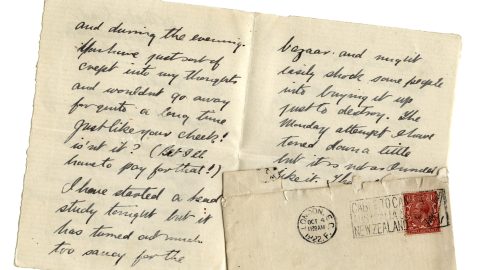 and during the evening.
You have just sort of
crept into my thoughts
and wouldnt go away
for quite a long time
Just like your cheek!
is'nt it? (Bet I'll
have to pay for that!)
I have started a head
study tonight but it
has turned out much
too saucy for the
bazaar. and might
easily shock some people
into buying it up
just to destroy. The
Monday attempt I have
toned down a little
but it is not as I
like it. The
LONDON. E.C.
OCT 4
1932
CABLE TO CA
AUSTRALIA
NEW ZEALAND